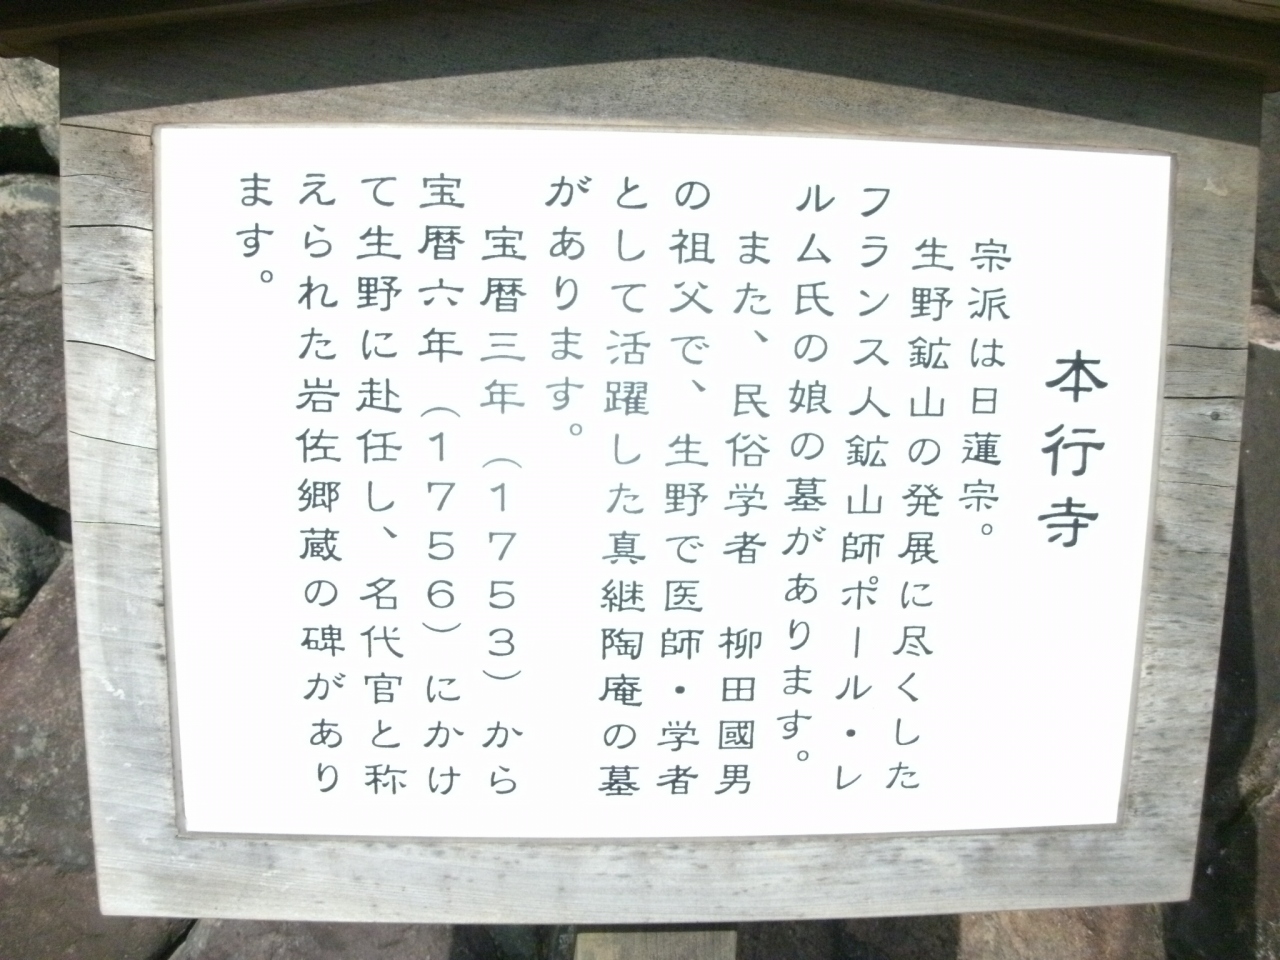 本行寺
宗派は日蓮宗。
生野鉱山の発展に尽くした
フランス人鉱山師ポール・レ
ルム氏の娘の墓があります。
また、民俗学者　柳田國男
の祖父で、生野で医師・学者
として活躍した真継陶庵の墓
があります。
宝暦三年（１７５３）から
宝暦六年（１７５６）にかけ
て生野に赴任し、名代官と称
えられた岩佐郷蔵の碑があり
ます。